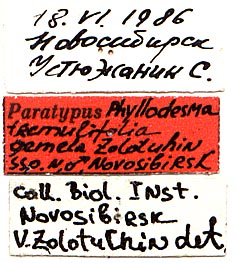 18. VI. 1986
Новосибирск
Устюжанин С.
Paratypus Phyllodesma
tremulifolia
gemela Zolotuhin
ssp. n. ♂ Novosibirsk
Coll. Biol. Inst.
Novosibirsk
V. Zolotuchin det.